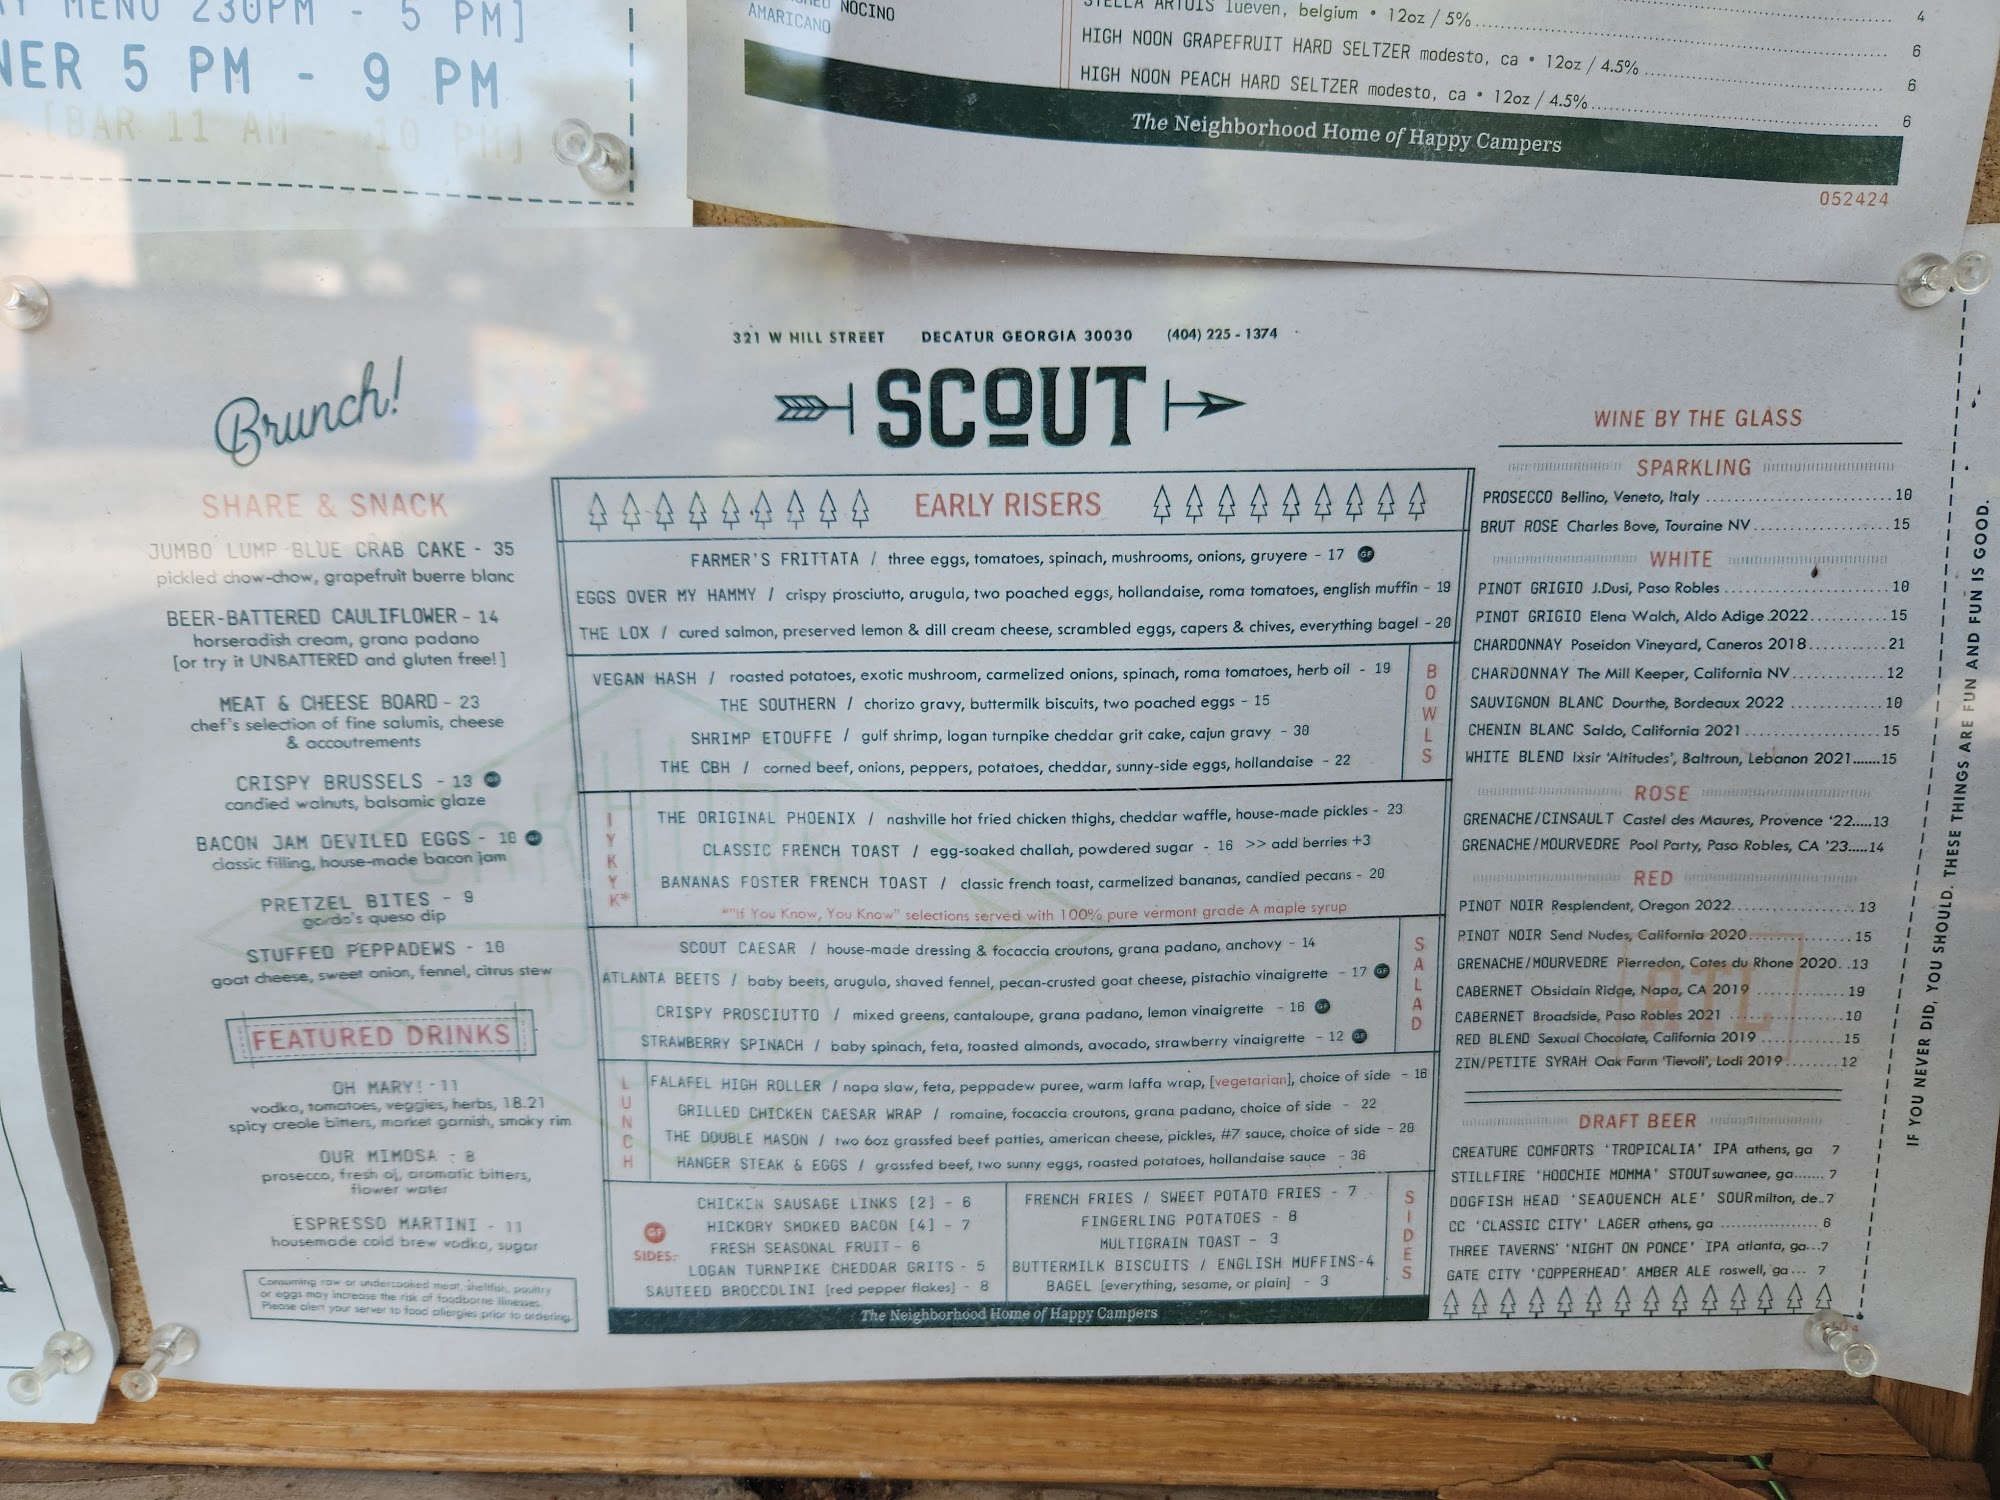 MENU 230PM - 5 PM]
NER 5 PM - 9 PM
[BAR 11 AM - 10 PM]
NOCINO
AMARICANO
STELLA ARTOIS lueven, belgium • 12oz / 5% 4
HIGH NOON GRAPEFRUIT HARD SELTZER modesto, ca • 12oz / 4.5% 6
HIGH NOON PEACH HARD SELTZER modesto, ca • 12oz / 4.5% 6
6
The Neighborhood Home of Happy Campers
052424
321 W HILL STREET DECATUR GEORGIA 30030 (404) 225 - 1374
SCOUT
Brunch!
SHARE & SNACK
JUMBO LUMP BLUE CRAB CAKE - 35
pickled chow-chow, grapefruit buerre blanc
BEER-BATTERED CAULIFLOWER - 14
horseradish cream, grana padano
[or try it UNBATTERED and gluten free!]
MEAT & CHEESE BOARD - 23
chef's selection of fine salumis, cheese
& accoutrements
CRISPY BRUSSELS - 13 GF
candied walnuts, balsamic glaze
BACON JAM DEVILED EGGS - 10 GF
classic filling, house-made bacon jam
PRETZEL BITES - 9
gordo's queso dip
STUFFED PEPPADEWS - 10
goat cheese, sweet onion, fennel, citrus stew
FEATURED DRINKS
OH MARY! - 11
vodka, tomatoes, veggies, herbs, 18.21
spicy creole bitters, market garnish, smoky rim
OUR MIMOSA - 8
prosecco, fresh oj, aromatic bitters,
flower water
ESPRESSO MARTINI - 11
housemade cold brew vodka, sugar
Consuming raw or undercooked meat, shellfish, poultry
or eggs may increase the risk of foodborne illnesses.
Please alert your server to food allergies prior to ordering.
EARLY RISERS
FARMER'S FRITTATA / three eggs, tomatoes, spinach, mushrooms, onions, gruyere - 17 GF
EGGS OVER MY HAMMY / crispy prosciutto, arugula, two poached eggs, hollandaise, roma tomatoes, english muffin - 19
THE LOX / cured salmon, preserved lemon & dill cream cheese, scrambled eggs, capers & chives, everything bagel - 20
BOWLS
VEGAN HASH / roasted potatoes, exotic mushroom, carmelized onions, spinach, roma tomatoes, herb oil - 19
THE SOUTHERN / chorizo gravy, buttermilk biscuits, two poached eggs - 15
SHRIMP ETOUFFE / gulf shrimp, logan turnpike cheddar grit cake, cajun gravy - 30
THE CBH / corned beef, onions, peppers, potatoes, cheddar, sunny-side eggs, hollandaise - 22
IYKYK*
THE ORIGINAL PHOENIX / nashville hot fried chicken thighs, cheddar waffle, house-made pickles - 23
CLASSIC FRENCH TOAST / egg-soaked challah, powdered sugar - 16 >> add berries +3
BANANAS FOSTER FRENCH TOAST / classic french toast, carmelized bananas, candied pecans - 20
*"If You Know, You Know" selections served with 100% pure vermont grade A maple syrup
SALAD
SCOUT CAESAR / house-made dressing & focaccia croutons, grana padano, anchovy - 14
ATLANTA BEETS / baby beets, arugula, shaved fennel, pecan-crusted goat cheese, pistachio vinaigrette - 17 GF
CRISPY PROSCIUTTO / mixed greens, cantaloupe, grana padano, lemon vinaigrette - 16 GF
STRAWBERRY SPINACH / baby spinach, feta, toasted almonds, avocado, strawberry vinaigrette - 12 GF
LUNCH
FALAFEL HIGH ROLLER / napa slaw, feta, peppadew puree, warm laffa wrap, [vegetarian], choice of side - 18
GRILLED CHICKEN CAESAR WRAP / romaine, focaccia croutons, grana padano, choice of side - 22
THE DOUBLE MASON / two 6oz grassfed beef patties, american cheese, pickles, #7 sauce, choice of side - 20
HANGER STEAK & EGGS / grassfed beef, two sunny eggs, roasted potatoes, hollandaise sauce - 36
GF
SIDES:
CHICKEN SAUSAGE LINKS [2] - 6
HICKORY SMOKED BACON [4] - 7
FRESH SEASONAL FRUIT - 6
LOGAN TURNPIKE CHEDDAR GRITS - 5
SAUTEED BROCCOLINI [red pepper flakes] - 8
FRENCH FRIES / SWEET POTATO FRIES - 7
FINGERLING POTATOES - 8
MULTIGRAIN TOAST - 3
BUTTERMILK BISCUITS / ENGLISH MUFFINS-4
BAGEL [everything, sesame, or plain] - 3
SIDES
The Neighborhood Home of Happy Campers
WINE BY THE GLASS
SPARKLING
PROSECCO Bellino, Veneto, Italy 10
BRUT ROSE Charles Bove, Touraine NV 15
WHITE
PINOT GRIGIO J.Dusi, Paso Robles 10
PINOT GRIGIO Elena Walch, Aldo Adige 2022 15
CHARDONNAY Poseidon Vineyard, Caneros 2018 21
CHARDONNAY The Mill Keeper, California NV 12
SAUVIGNON BLANC Dourthe, Bordeaux 2022 10
CHENIN BLANC Saldo, California 2021 15
WHITE BLEND Ixsir 'Altitudes', Baltroun, Lebanon 2021 15
ROSE
GRENACHE/CINSAULT Castel des Maures, Provence '22 13
GRENACHE/MOURVEDRE Pool Party, Paso Robles, CA '23 14
RED
PINOT NOIR Resplendent, Oregon 2022 13
PINOT NOIR Send Nudes, California 2020 15
GRENACHE/MOURVEDRE Pierredon, Cotes du Rhone 2020 13
CABERNET Obsidain Ridge, Napa, CA 2019 19
CABERNET Broadside, Paso Robles 2021 10
RED BLEND Sexual Chocolate, California 2019 15
ZIN/PETITE SYRAH Oak Farm 'Tievoli', Lodi 2019 12
DRAFT BEER
CREATURE COMFORTS 'TROPICALIA' IPA athens, ga 7
STILLFIRE 'HOOCHIE MOMMA' STOUT suwanee, ga 7
DOGFISH HEAD 'SEAQUENCH ALE' SOUR milton, de 7
CC 'CLASSIC CITY' LAGER athens, ga 6
THREE TAVERNS' 'NIGHT ON PONCE' IPA atlanta, ga 7
GATE CITY 'COPPERHEAD' AMBER ALE roswell, ga 7
IF YOU NEVER DID, YOU SHOULD. THESE THINGS ARE FUN AND FUN IS GOOD.